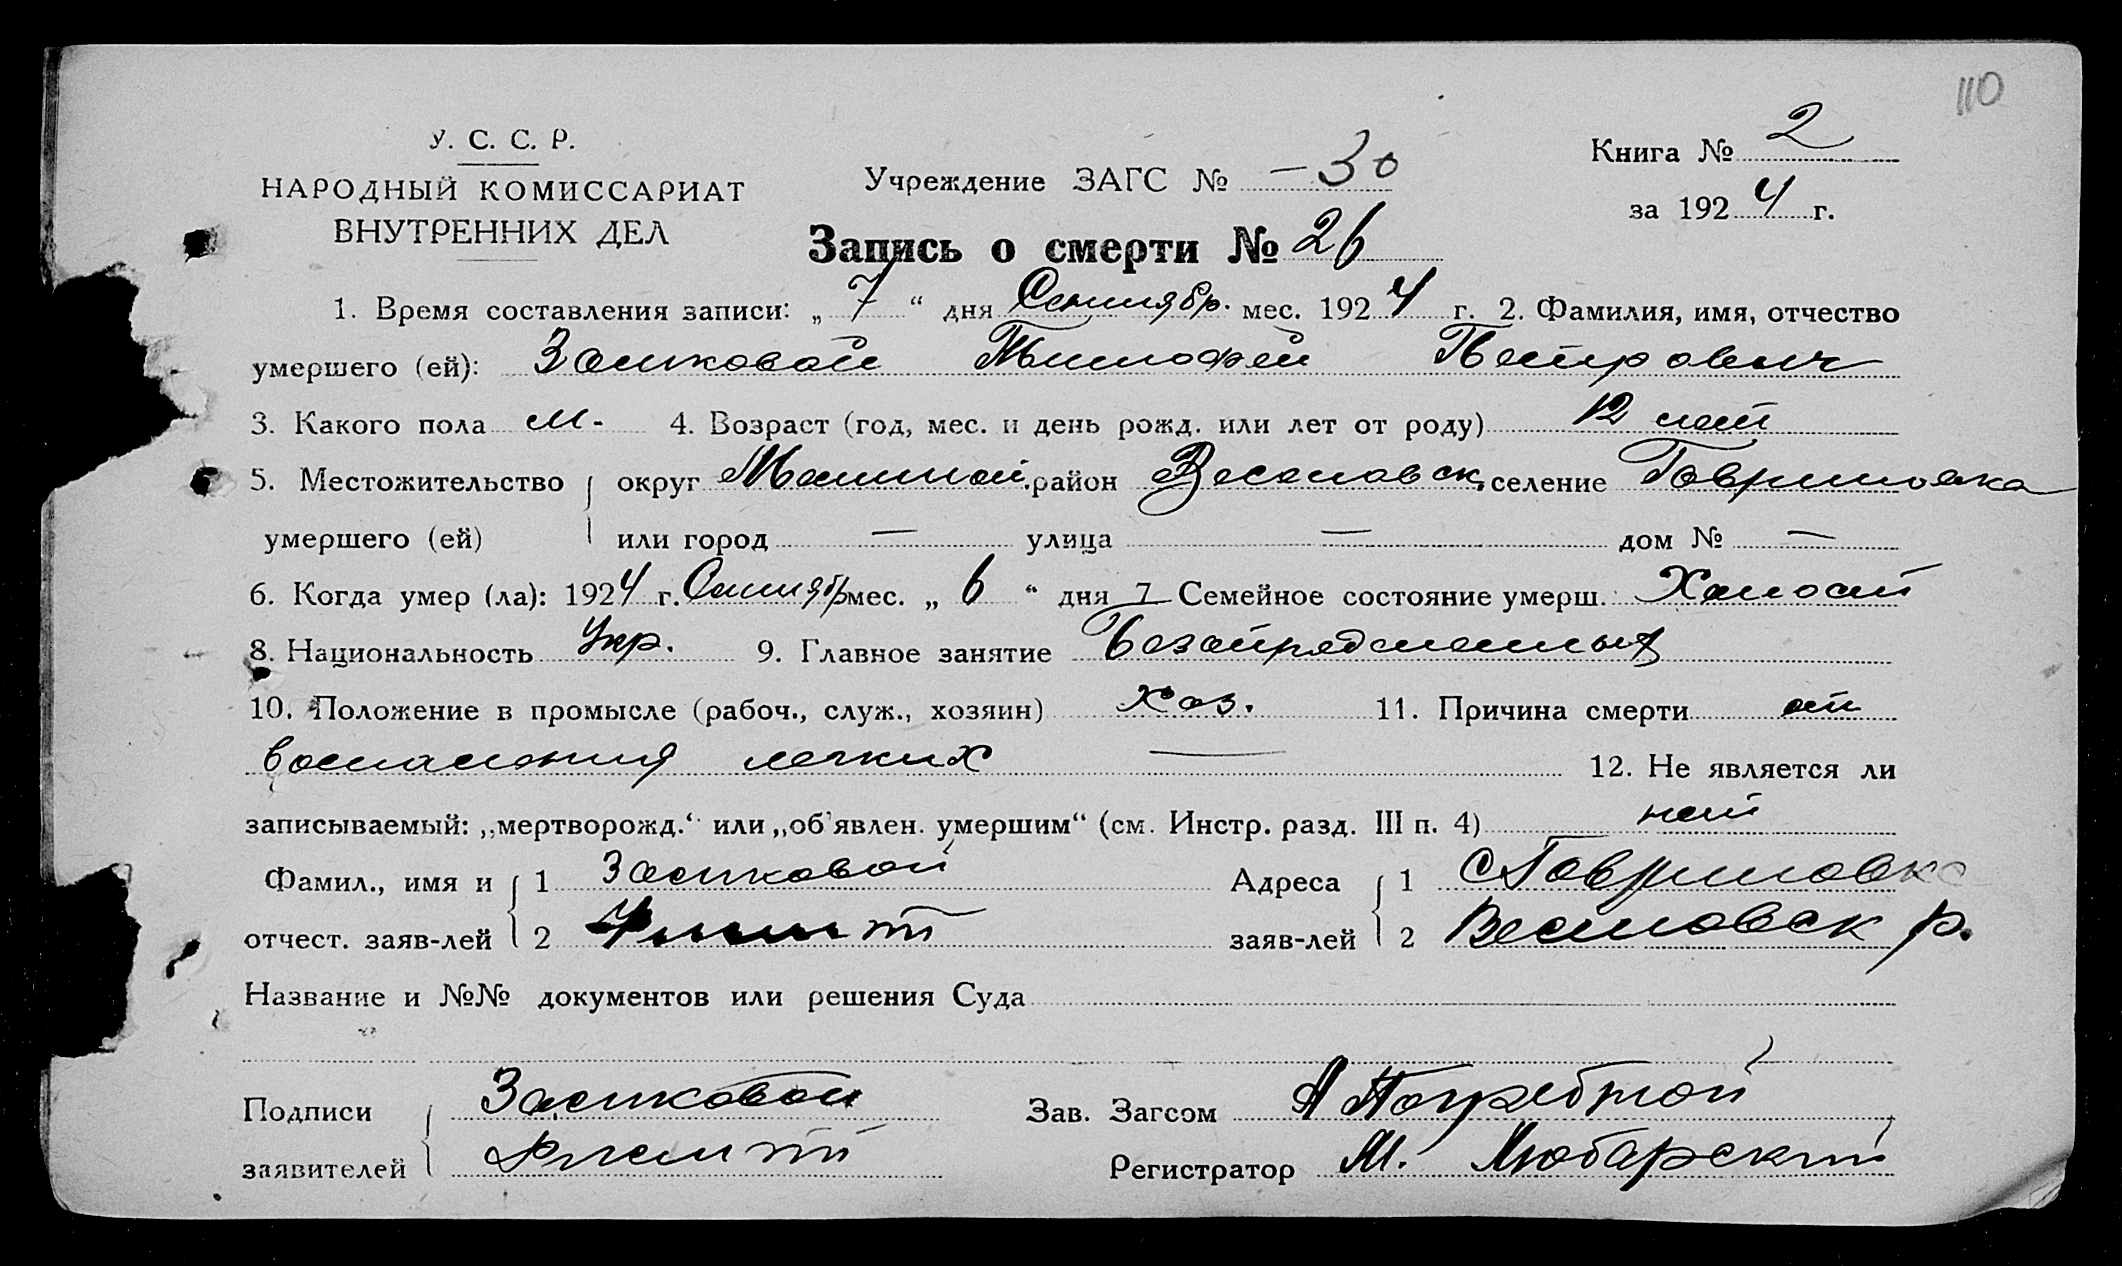 110
У. С. С. Р.
НАРОДНЫЙ КОМИССАРИАТ
ВНУТРЕННИХ ДЕЛ
Учреждение ЗАГС № – 30
Книга № 2
за 1924 г.
Запись о смерти № 26
1. Время составления записи: „ 7 “ дня Сентябр. мес. 1924 г. 2. Фамилия, имя, отчество
умершего (ей): Затковой Тимофей Петрович
3. Какого пола м. 4. Возраст (год, мес. и день рожд. или лет от роду) 12 лет
5. Местожительство округ район Веселовск. селение Гавриловка
умершего (ей) или город — улица — дом № —
6. Когда умер (ла): 1924 г. Сентябр мес. „ 6 “ дня 7 Семейное состояние умерш. Холост
8. Национальность Укр. 9. Главное занятие
10. Положение в промысле (рабоч., служ., хозяин) хоз. 11. Причина смерти от
воспаления легких — 12. Не является ли
записываемый: „мертворожд.“ или „об'явлен. умершим“ (см. Инстр. разд. III п. 4) нет
Фамил., имя и 1 Затковой Адреса 1 с Гавриловка
отчест. заяв-лей 2 заяв-лей 2 Веселовск р.
Название и №№ документов или решения Суда
Подписи Затковой Зав. Загсом А Погребной
заявителей Регистратор М. Любарский